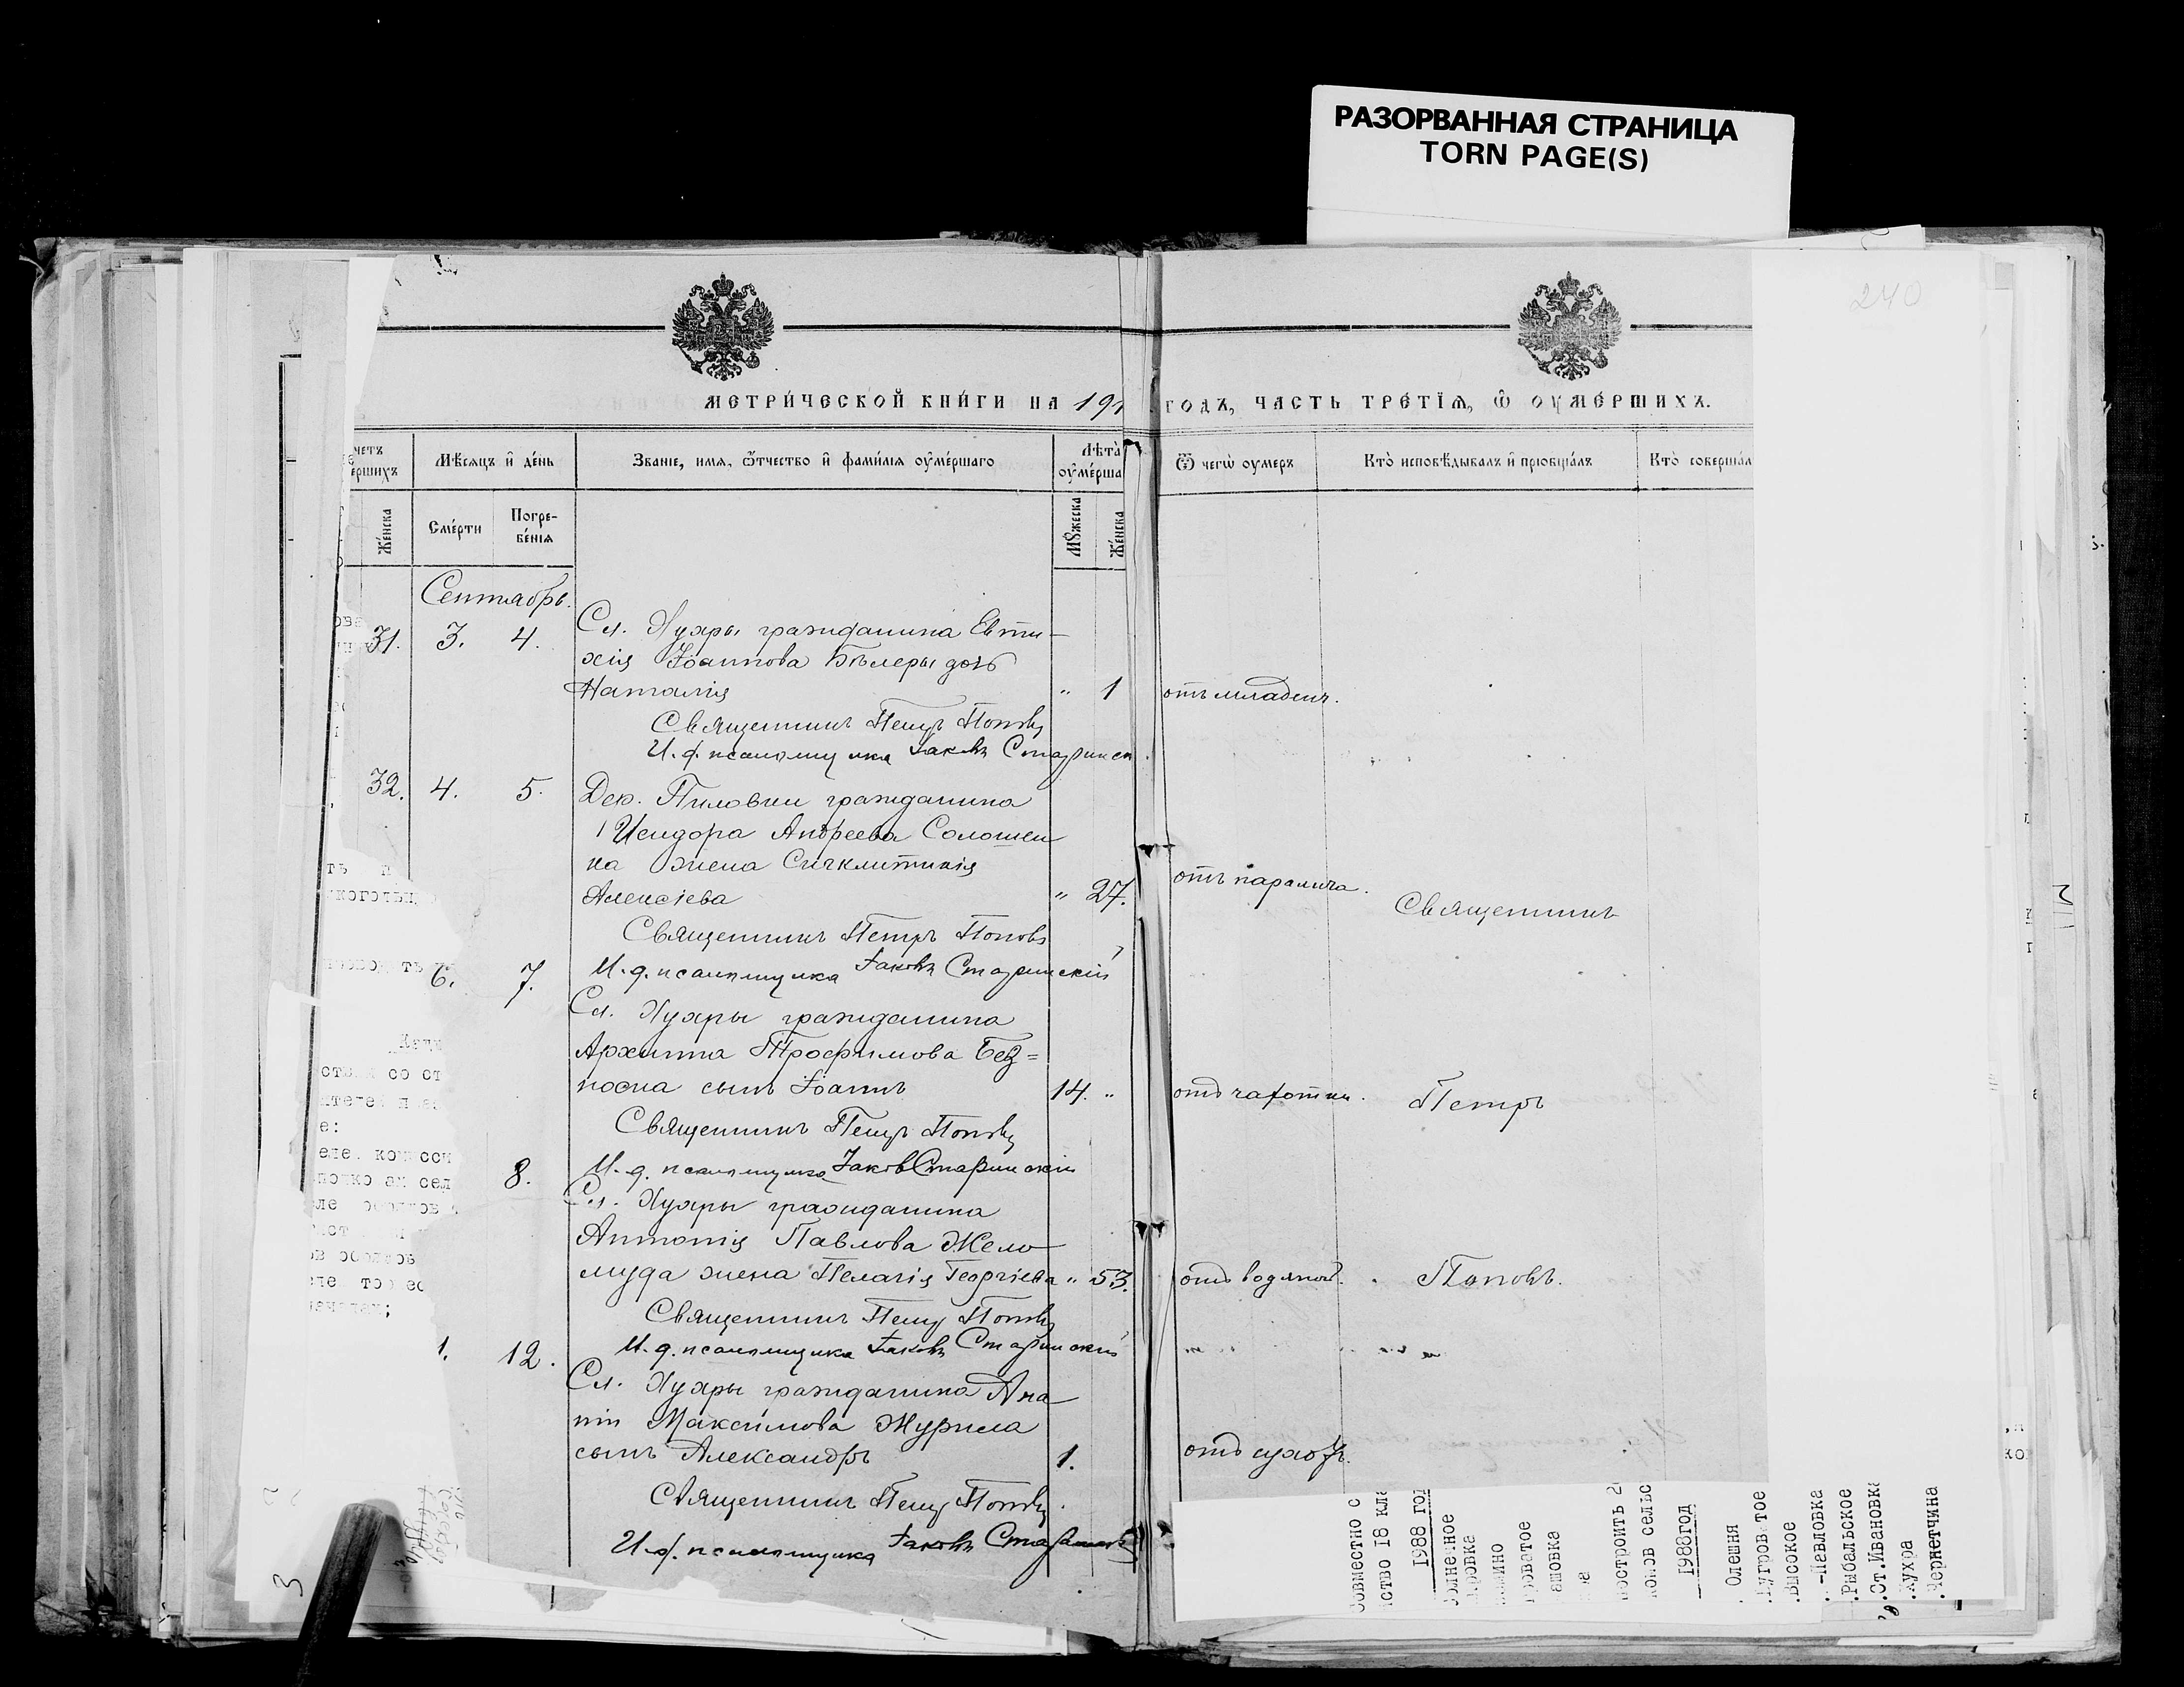 РАЗОРВАННАЯ СТРАНИЦА
TORN PAGE(S)
240
МЕТРИ́ЧЕСКОЙ КНИ́ГИ НА 191 ГОДЪ, ЧАСТЬ ТРЕ́ТІѦ, Ѿ ОУМЕ́РШИХЪ.
четъ
ершихъ
Мѣ́сѧцъ и҆ де́нь
Зва́нїе, имѧ, ѻ҆́тчество и҆ фами́лїѧ оу҆ме́ршаго
Лѣта̀
оу҆ме́рша
Ѿ чегѡ̀ оумеръ
Кто̀ исповѣ́дывалъ и҆ прїобща́лъ
Кто̀ соверша́л
Же́нска
Сме́рти
Погре-
бе́нїѧ
Мꙋ́жеска
Же́нска
Сентябрь.
31. 3. 4. Сл. Хухры гражданина Евти-
хія Іоаннова Бѣлеры дочь
Наталія " 1 отъ младен.
Священникъ Петръ Поповъ
И. д. псаломщика Іаковъ Старинск
32. 4. 5. Дер. Пиловки гражданина
Исидора Андреева Солошен
ка жена Синклитикія
Алексіева " 27. отъ паралича. Священникъ
Священникъ Петръ Поповъ
И. д. псаломщика Іаковъ Старинскій
6. 7. Сл. Хухры гражданина
Архиппа Трофимова Без=
носна сынъ Іоаннъ 14. " отъ чахотки. Петръ
Священникъ Петръ Поповъ
8. И. д. псаломщика Іаковъ Старинскій
Сл. Хухры гражданина
Антонія Павлова Жело
муда жена Пелагія Георгіева " 53. отъ водяной. Поповъ.
Священникъ Петръ Поповъ
И. д. псаломщика Іаковъ Старинскій
1. 12. Сл. Хухры гражданина Ана
ніи Максимова Журила
сынъ Александръ 1. отъ сухот.
Священникъ Петръ Поповъ.
И. д. псаломщика Іаковъ
3
овместно с
ство 18 кла
1988 год
олнечное
ровка
мино
ашовка
построить 2
конов сельс
1988год
Олешня
Высокое
-Павловка
.Рыбальское
.Ст.Ивановка
.Хухра
.Чернетчина